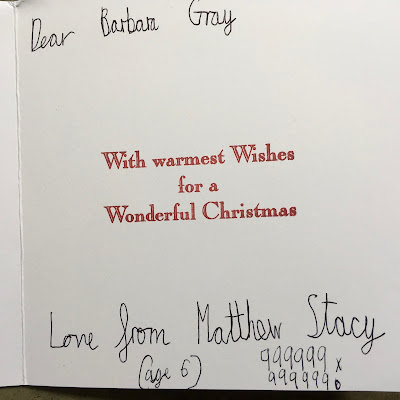 Dear Barbara Gray
With warmest Wishes
for a
Wonderful Christmas
Love from Matthew Stacy
(age 6) 999999 x
999999 o